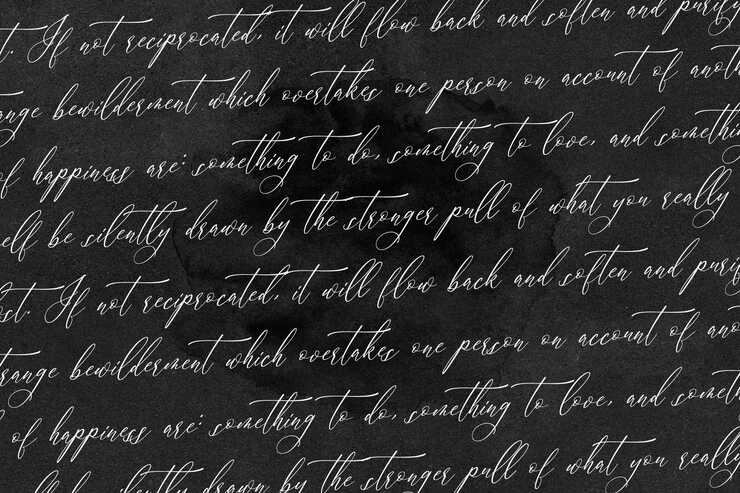 t. If not reciprocated, it will flow back and soften and purify
ange bewilderment which overtakes one person on account of anoth
of happiness are: something to do, something to love, and somethin
elf be silently drawn by the stronger pull of what you really
st. If not reciprocated, it will flow back and soften and purif
range bewilderment which overtakes one person on account of ano
of happiness are: something to do, something to love, and someth
be silently drawn by the stronger pull of what you really